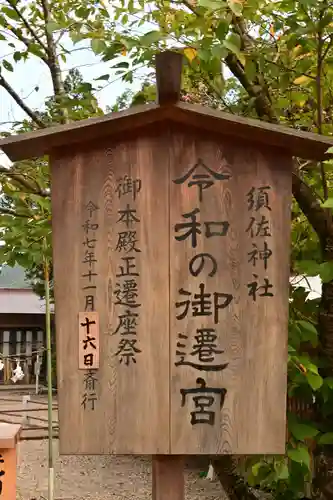 須佐神社
令和の御遷宮
御本殿正遷座祭
令和七年十一月十六日斎行